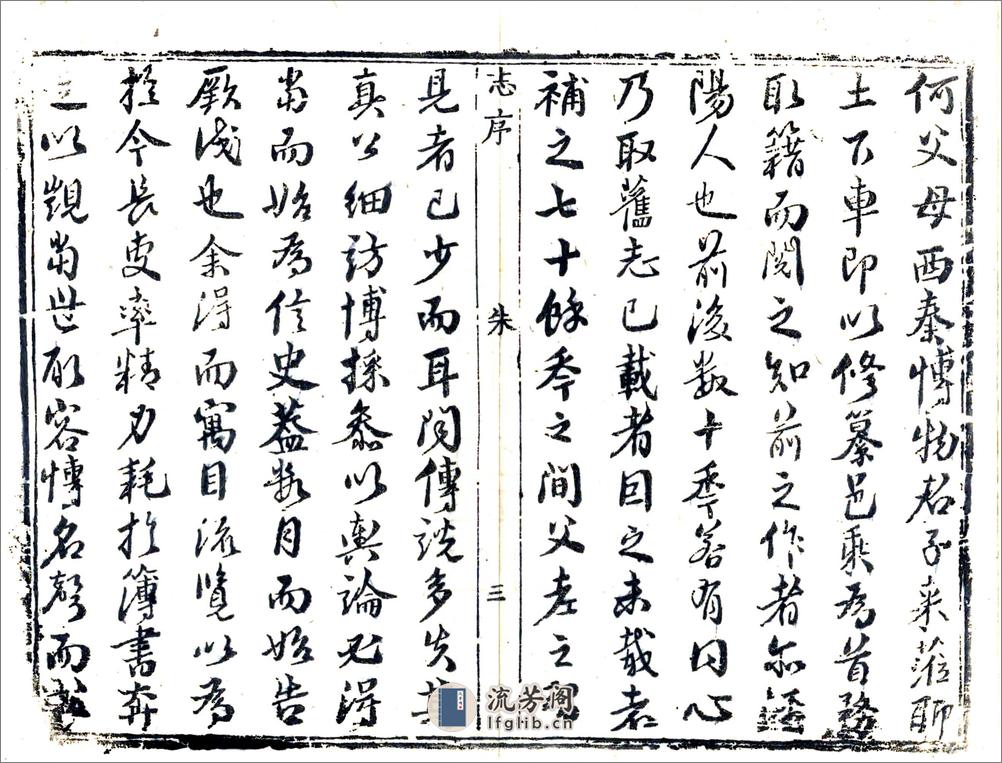 何父母西秦博物君子来蒞聊
土下車即以修纂邑乘為首務
取籍而閱之知前之作者亦
陽人也前後数十季若有同心
乃取舊志已載者因之未載者
補之七十餘季之間父老之
見者已少而耳聞傳説多失其
真公細訪博採叅以輿論必得
當而始為信史葢数月而始告
厥成也余得而寓目流覽以為
於今長吏率精力耗於簿書奔
走以覬當世取容博名聲而
志序
朱
三
流芳阁
lfglib.cn